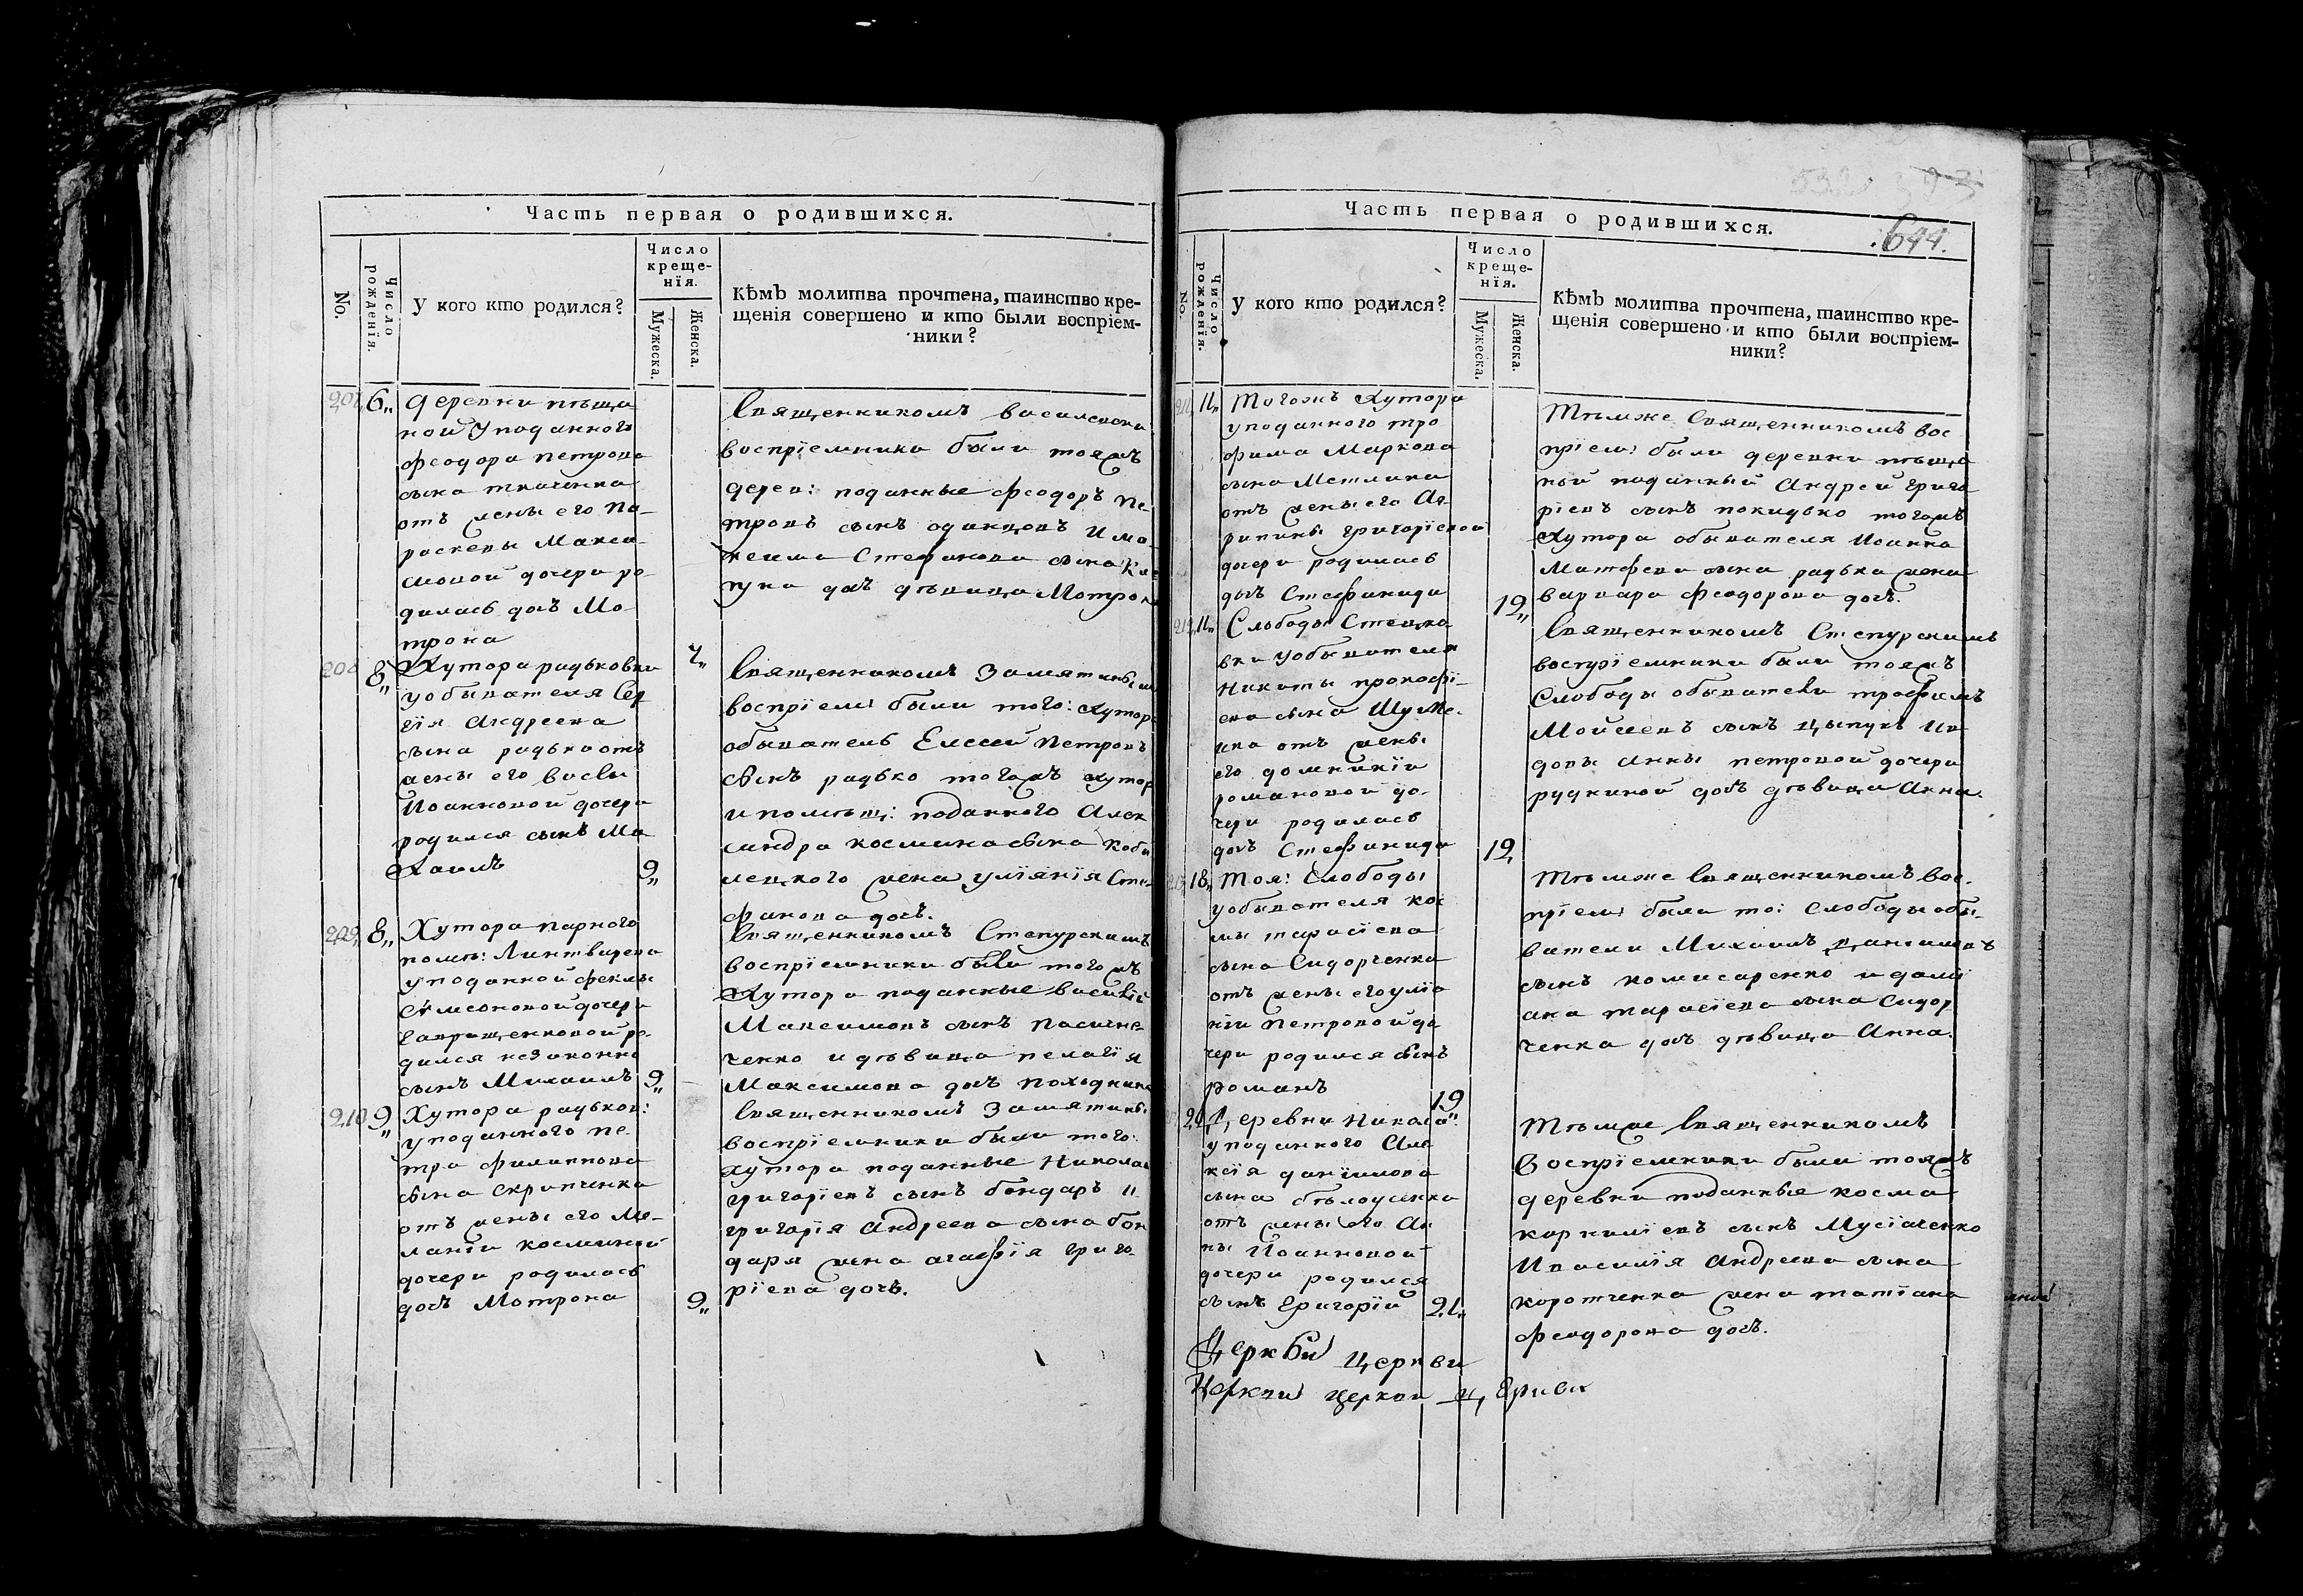 Часть первая о родившихся.
No.
Число рожденїя.
У кого кто родился?
Число
креще-
нїя.
Мужеска.
Женска.
Кѣмъ молитва прочтена, таинство кре-
щенїя совершено и кто были воспрїем-
ники?
207, 6„
Деревни пѣща
ной у поданного
феодора петрова
сына ткаченка
отъ жены его Па-
раскевы Макси-
мовой дочери ро-
дилась дочь Мо-
трона
7„
Священникомъ
воспрїемники были тояжъ
дерев: поданные феодоръ Пе
тровъ сынъ одинцовъ и ма
Стефанова сына
дочь дѣвица Мотрона
208 8„
Хутора радьковки
у обывателя Сер
гїя Андреева
сына радька отъ
жены его
Иоанновой дочери
родился сынъ Ми
хаилъ
9„
Священникомъ Замятинымъ
воспрїем: были того: хутора
обыватель Елесей Петровъ
сынъ радько тогожъ хутор
и помѣщ: поданного Алек
сандра космина сына Коби
лецкого жена улїянїя Сте-
фанова дочь.
209, 8„
Хутора парного
помѣ: Линтварева
у поданной феклы
Сѵмеоновой дочери
Гаврищенковой ро-
дился незаконно
сынъ Михаилъ
9„
Священникомъ Степурскимъ
воспрїемники были тогожъ
Хутора поданные василїй
Максимовъ сынъ пасичне
ченко и дѣвица пелагїя
Максимова дочь
210 9„
Хутора радьков:
у поданного Пе
тра филиппова
сына скрипченка
отъ жены его Ме-
ланїи косминой
дочери родилась
дочь Мотрона
9„
Священникомъ Замятины:
воспрїемники были того:
хутора поданные Николай
григорїевъ сынъ бондарь и
григорїя Андреева сына бон
даря жена агафїя григо-
рїева дочь.
Часть первая о родившихся.
644.
No.
Число рожденїя.
У кого кто родился?
Число
креще-
нїя.
Мужеска.
Женска.
Кѣмъ молитва прочтена, таинство кре-
щенїя совершено и кто были воспрїем-
ники?
211, 11„
Тогожъ Хутора
у поданного тро
фима Маркова
сына Метлика
отъ жены его Аг
рипины григорїевой
дочери родилась
дочь Стефанида
12„
Тѣмже Священникомъ вос
прїем: были деревни пѣща
ной поданный Андрей григо
рїевъ сынъ покидько тогожъ
Хутора обывателя Иоанна
Матфеева сына радька жена
варвара феодорова дочь.
212, 11„
Слободы Стецко-
вки у обывателя
Никиты прокофї-
ева сына Шуме-
ика отъ жены
его домникїи
романовой до-
чери родилась
дочь Стефанида
12,
Священникомъ Степурскимъ
воспрїемники были тояжъ
Слободы обыватели трофимъ
Мойсеевъ сынъ цыпукъ и в
довы Анны петровой дочери
рудкиной дочь дѣвица Анна.
213 18„
Тоя: Слободы
у обывателя кос
мы тарасїева
сына Сидорченка
отъ жены его улїа
нїи петровой до
чери родился сынъ
романъ
19
Тѣмже Священникомъ вос-
прїем: были то: Слободы обы-
ватели Михаилъ
сынъ комисаренко и демї
ана тарасїева сына Сидор
ченка дочь дѣвица Анна.
Деревни Никола:
у поданного Але
ксїя данїилова
сына бѣлоусенка
отъ жены его Ан
ны Иоанновой
дочери родился
сынъ Григорїй
21„
Тѣмже Священникомъ
Воспрїемники были тояжъ
деревни поданные косма
корнилїевъ сынъ Мусїяченко
И василїя Андреева сына
коротченка жена татїана
феодорова дочь.
Церкви Церкви
Церкви церкви церкви